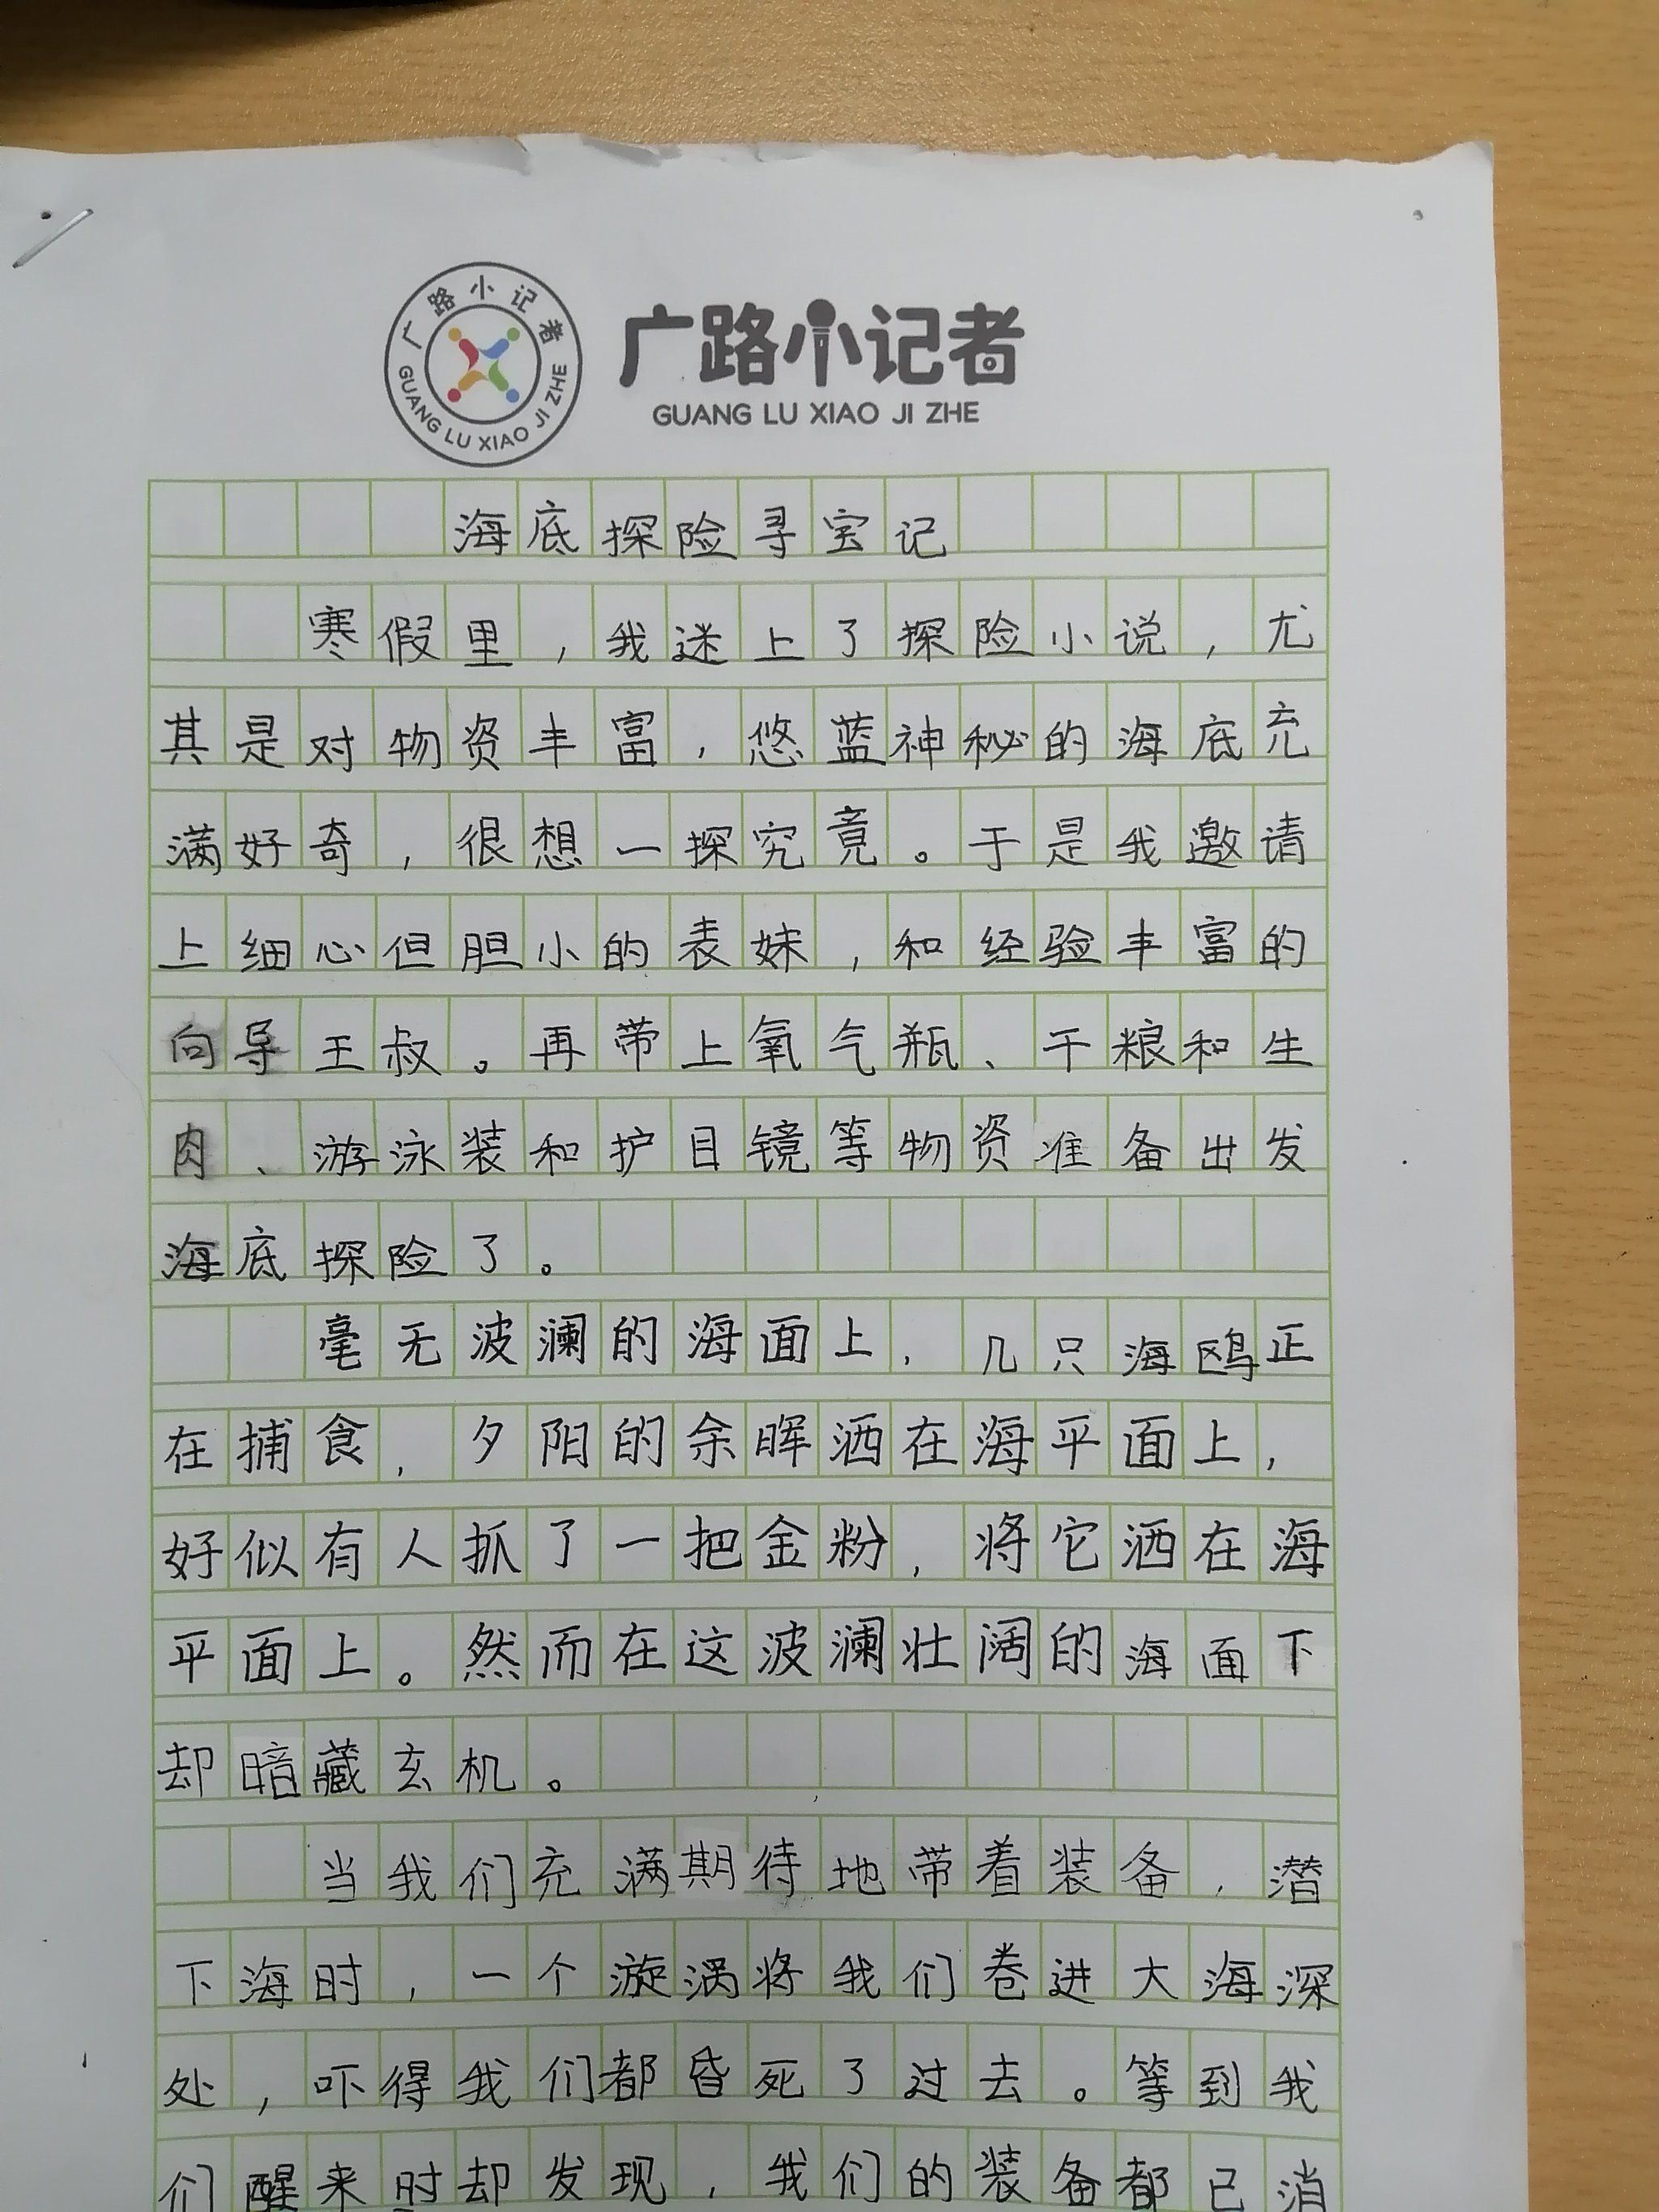 广路小记者
GUANG LU XIAO JI ZHE
广路小记者
GUANG LU XIAO JI ZHE
海底探险寻宝记
寒假里，我迷上了探险小说，尤
其是对物资丰富，悠蓝神秘的海底充
满好奇，很想一探究竟。于是我邀请
上细心但胆小的表妹，和经验丰富的
向导王叔。再带上氧气瓶、干粮和生
肉、游泳装和护目镜等物资准备出发
海底探险了。
毫无波澜的海面上，几只海鸥正
在捕食，夕阳的余晖洒在海平面上，
好似有人抓了一把金粉，将它洒在海
平面上。然而在这波澜壮阔的海面下
却暗藏玄机。
当我们充满期待地带着装备，潜
下海时，一个漩涡将我们卷进大海深
处，吓得我们都昏死了过去。等到我
们醒来时却发现，我们的装备都已消